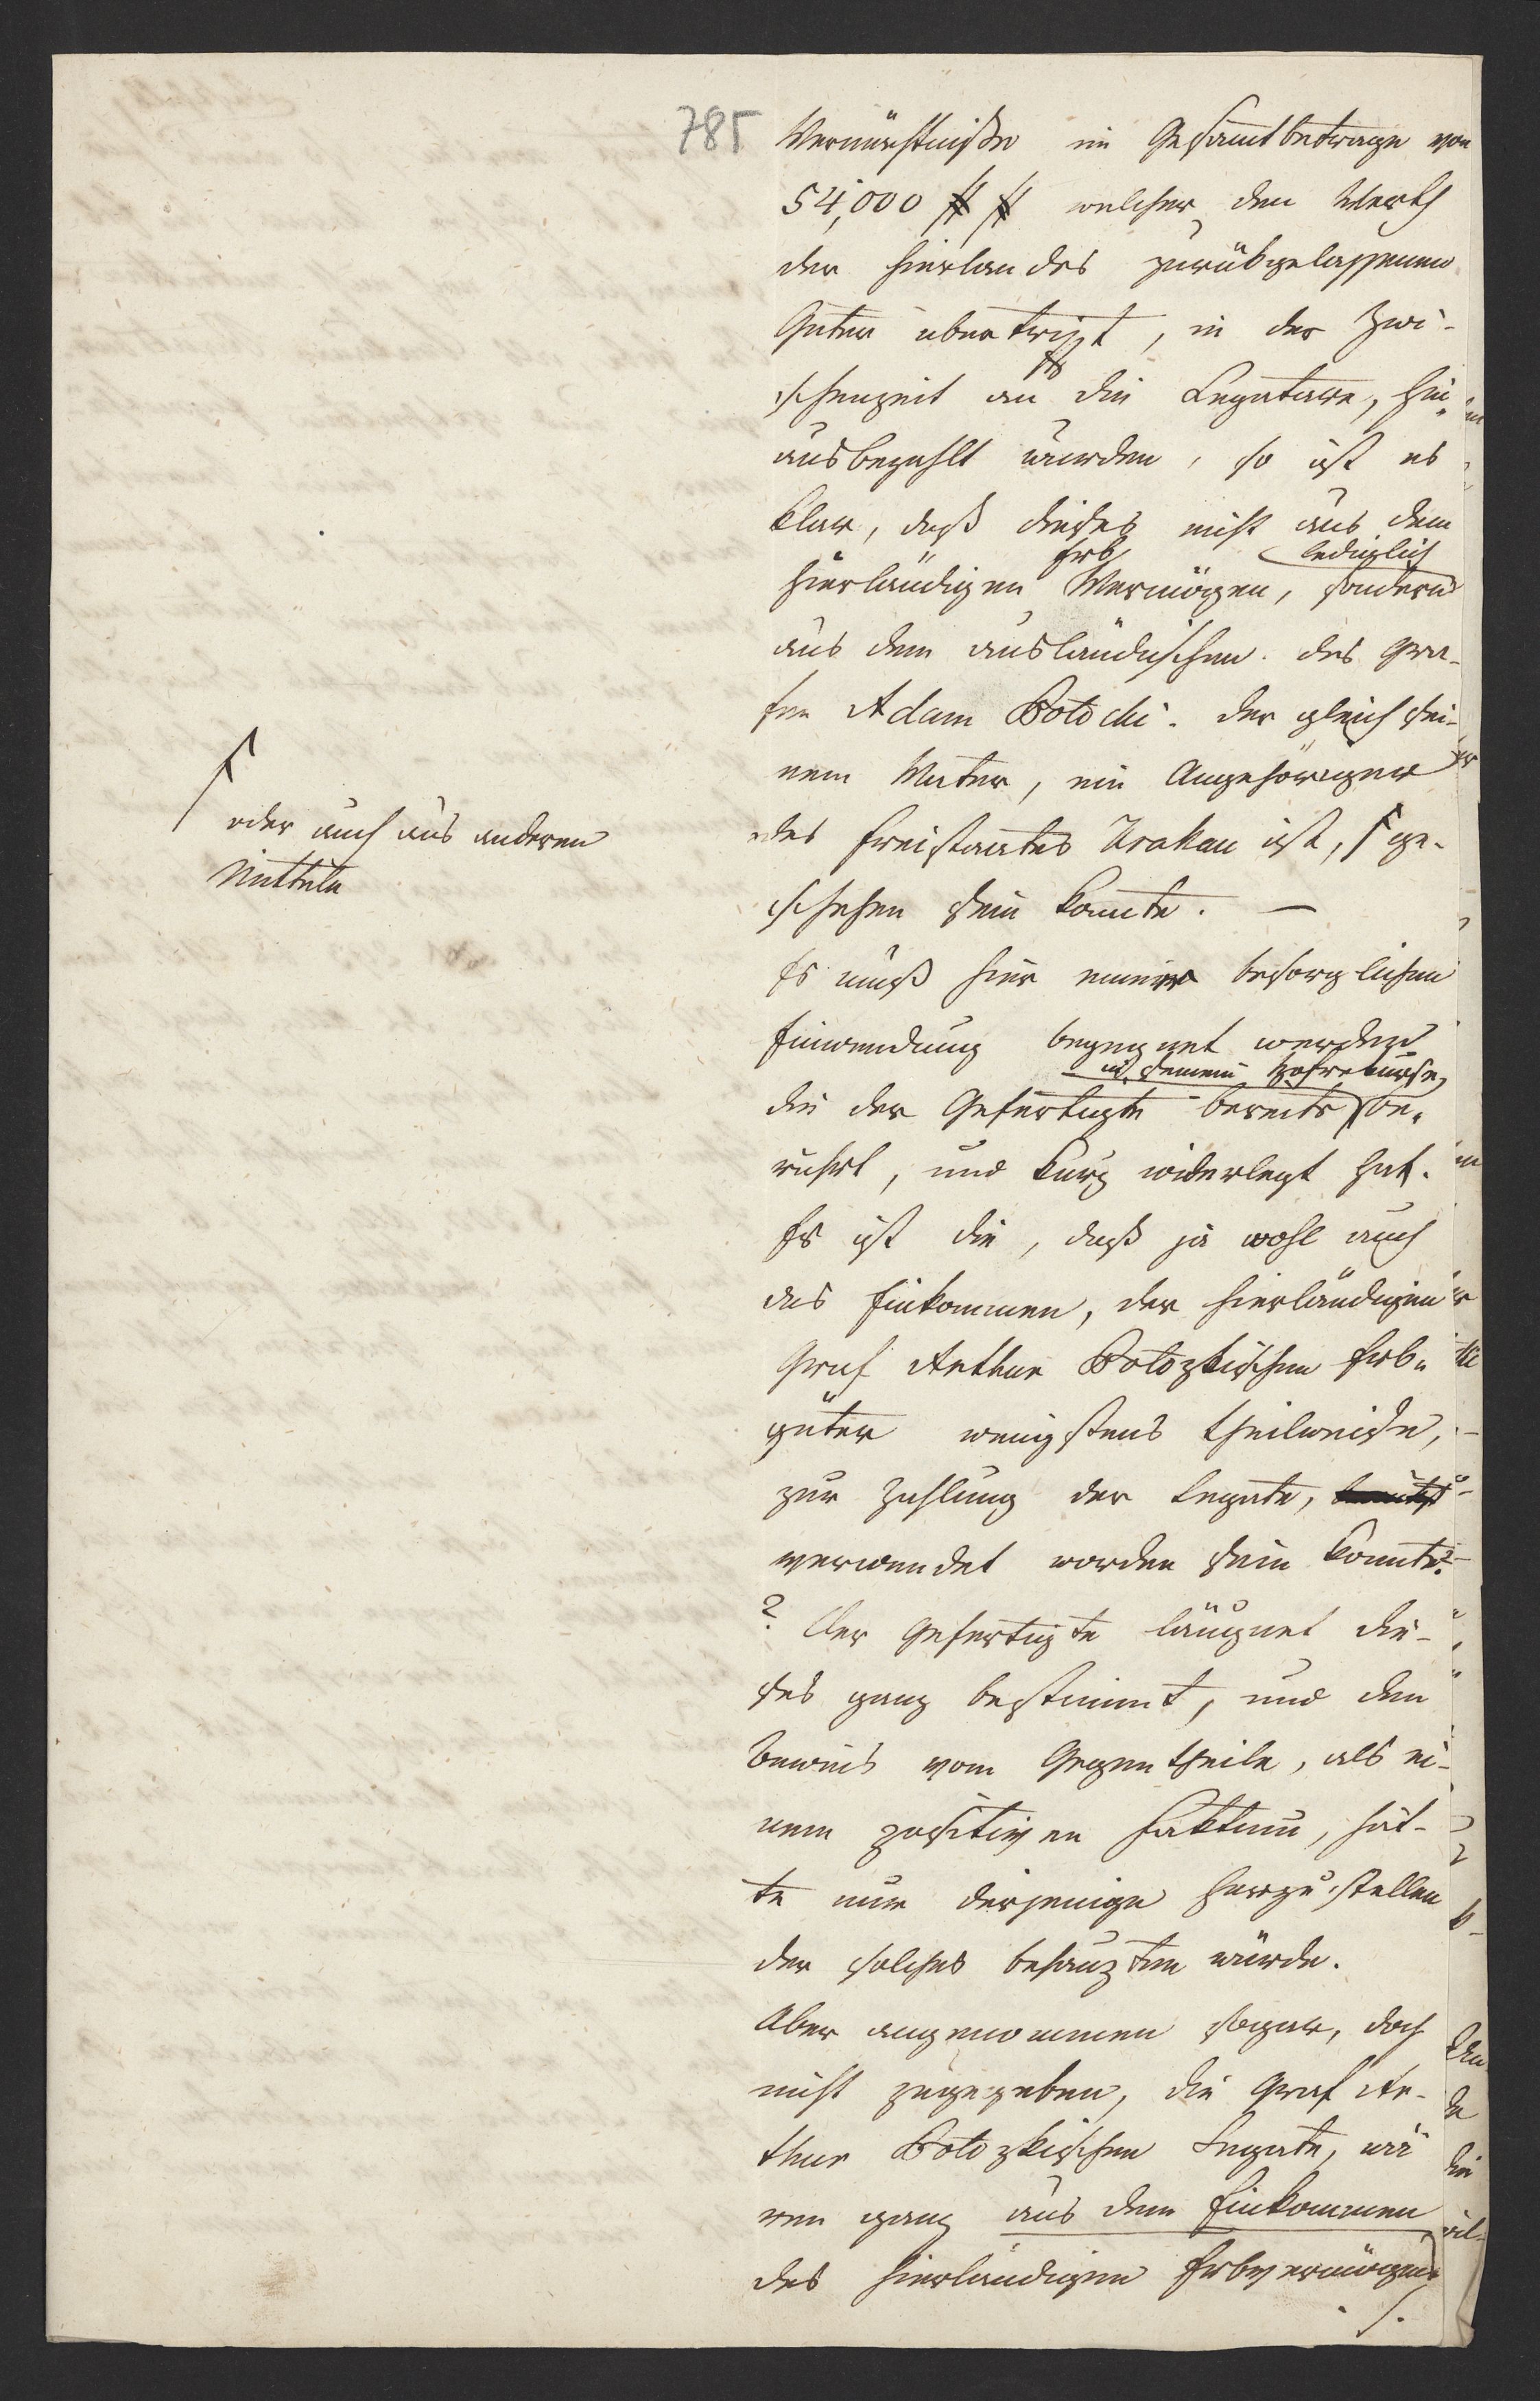 785
Vermächtniße im Gesammtbetrage von
54,000 # # welcher den Werth
der hierlandes zurükgelassenen
Güter übertrifft, in der Zwi-
schenzeit an die Legatare, hin
ausbezahlt wurden, so ist es
klar, daß dieses nicht aus dem
lediglich
hierländigen Erb Vermögen, sondern
aus dem ausländischen des Gra-
fen Adam Potocki. der gleich sei-
nem Vater, ein Angehöriger
des Freistaates Krakau ist, ge-
oder auch aus anderen
Mitteln
schehen sein konnte. —
Es muß hier einer besorglichen
Einwendung begegnet werden
in seinem Hofrekurse
die der Gefertigte bereits be-
rührt, und kurz widerlegt hat.
Es ist die, daß ja wohl auch
das Einkommen, der hierländigen
Graf Arthur Potozkischen Erb-
güter wenigstens theilweise,
zur Zahlung der Legate,
verwendet worden sein konnte?
? Der Gefertigte läugnet die-
ses ganz bestimmt, und den
Beweis vom Gegentheile, als ei-
nem positiven Faktum, hät-
te nur derjenige herzustellen
der solches behaupten würde.
Aber angenommen sogar, doch
nicht zugegeben, die Graf Ar-
thur Potozkischen Legate, wä
ren ganz aus dem Einkommen
des hierländigen Erbvermögens
./.